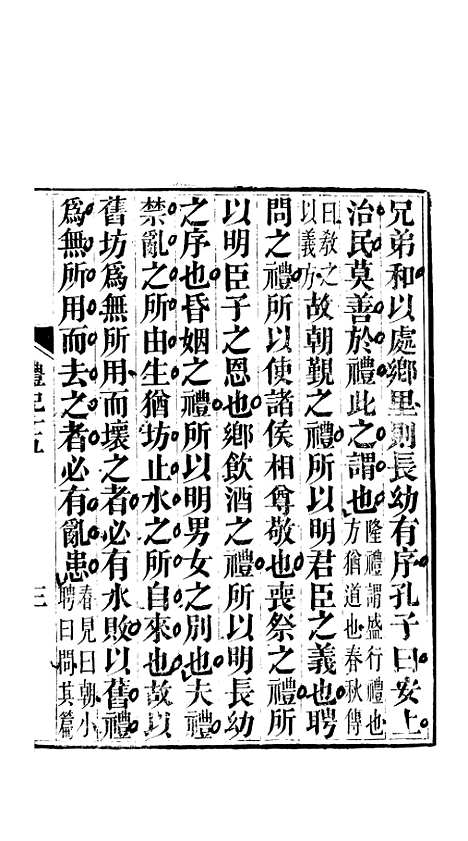 兄弟和以處鄉里則長幼有序孔子曰安上
治民莫善於禮此之謂也隆禮謂盛行禮也方猶道也春秋傳
曰教之以義方故朝覲之禮所以明君臣之義也聘
問之禮所以使諸侯相尊敬也喪祭之禮所
以明臣子之恩也鄉飲酒之禮所以明長幼
之序也昏姻之禮所以明男女之別也夫禮
禁亂之所由生猶坊止水之所自來也故以
舊坊爲無所用而壞之者必有水敗以舊禮
爲無所用而去之者必有亂患春見曰朝小聘曰問其篇
禮記十五
三